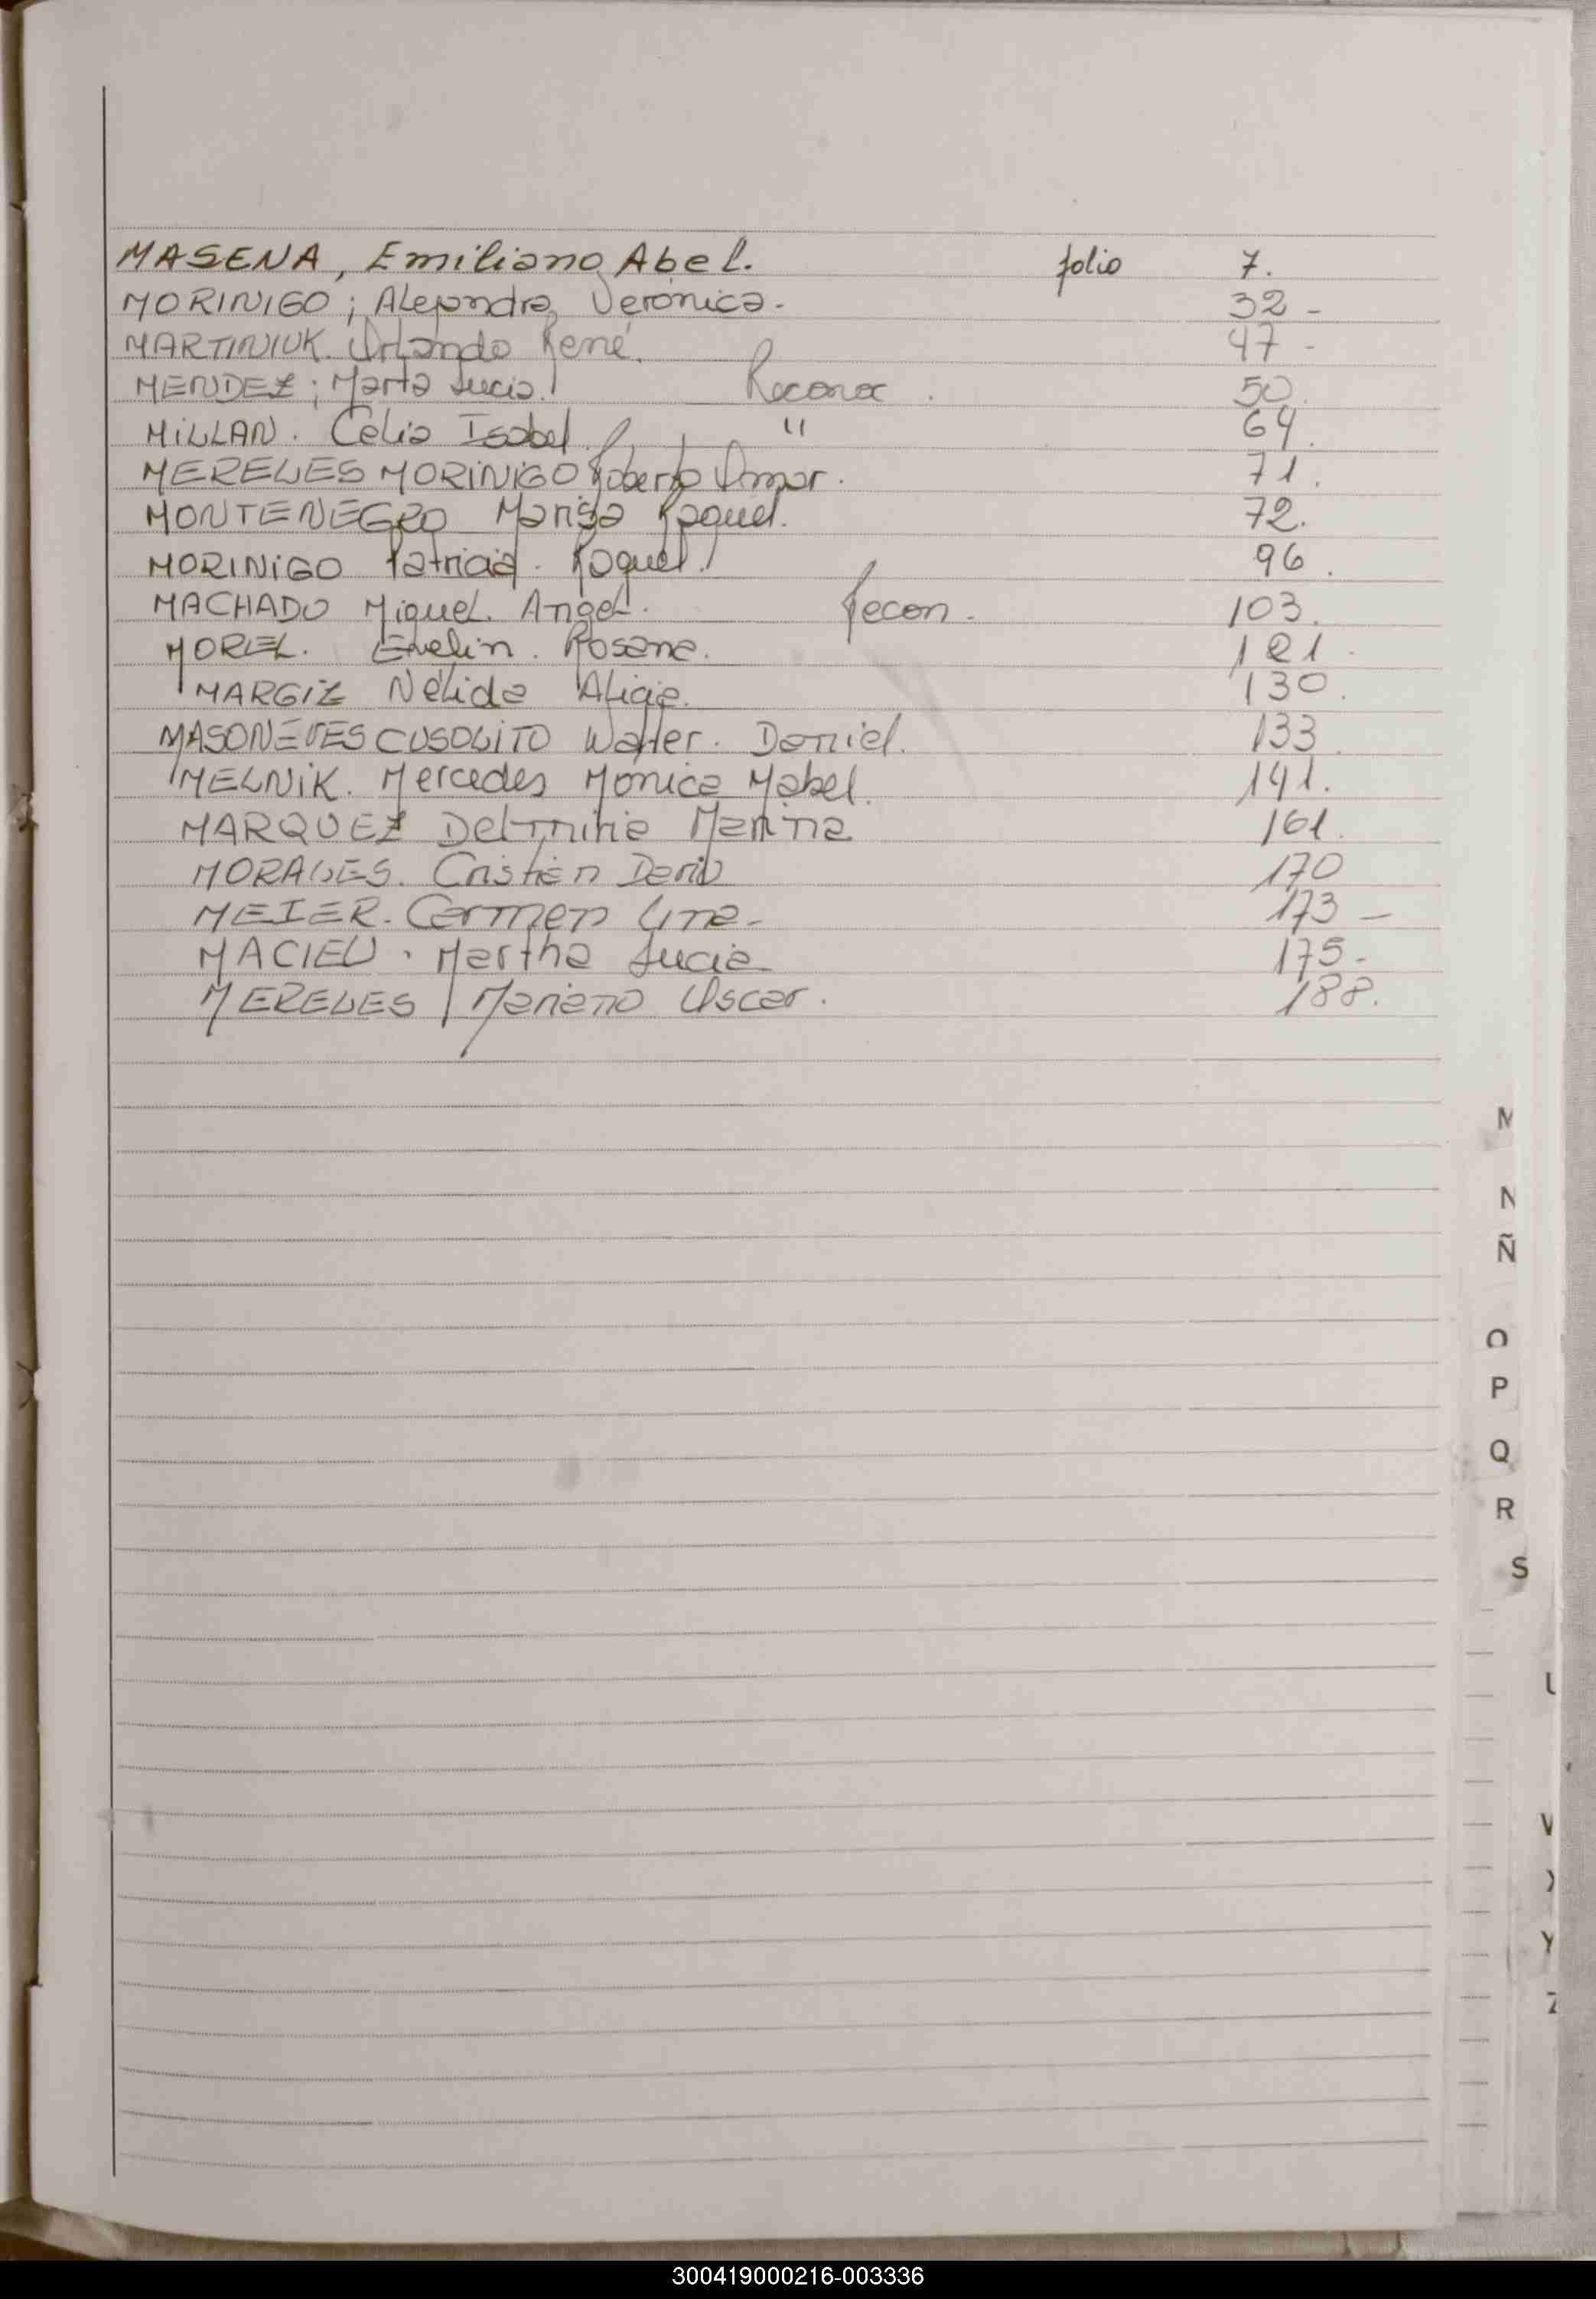 MASENA, Emiliano Abel. folio 7.
MORINIGO; Alejandra Verónica. 32 -
MARTINIUK. Orlando René. 47 -
MENDEZ; Marta Lucia. Reconoc. 50.
MILLAN. Celia Isabel. " 64.
MERELES MORINIGO Roberto Omar. 71.
MONTENEGRO Marisa Raquel. 72.
MORINIGO Patricia. Raquel. 96.
MACHADO Miguel. Angel. recon. 103.
MOREL. Evelin. Rosana. 121.
MARGIZ Nélida Alicia. 130.
MASONEVES CUSOLITO Walter. Daniel. 133
MELNIK. Mercedes Monica Mabel. 141.
MARQUEZ Marina 161.
MORALES. Cristian Dario 170
MEIER. Carmen Lina - 173 -
MACIEL. Martha Lucia 175 -
MERELES Mariano Oscar. 188.
M
N
Ñ
O
P
Q
R
S
U
V
X
Y
Z
300419000216-003336